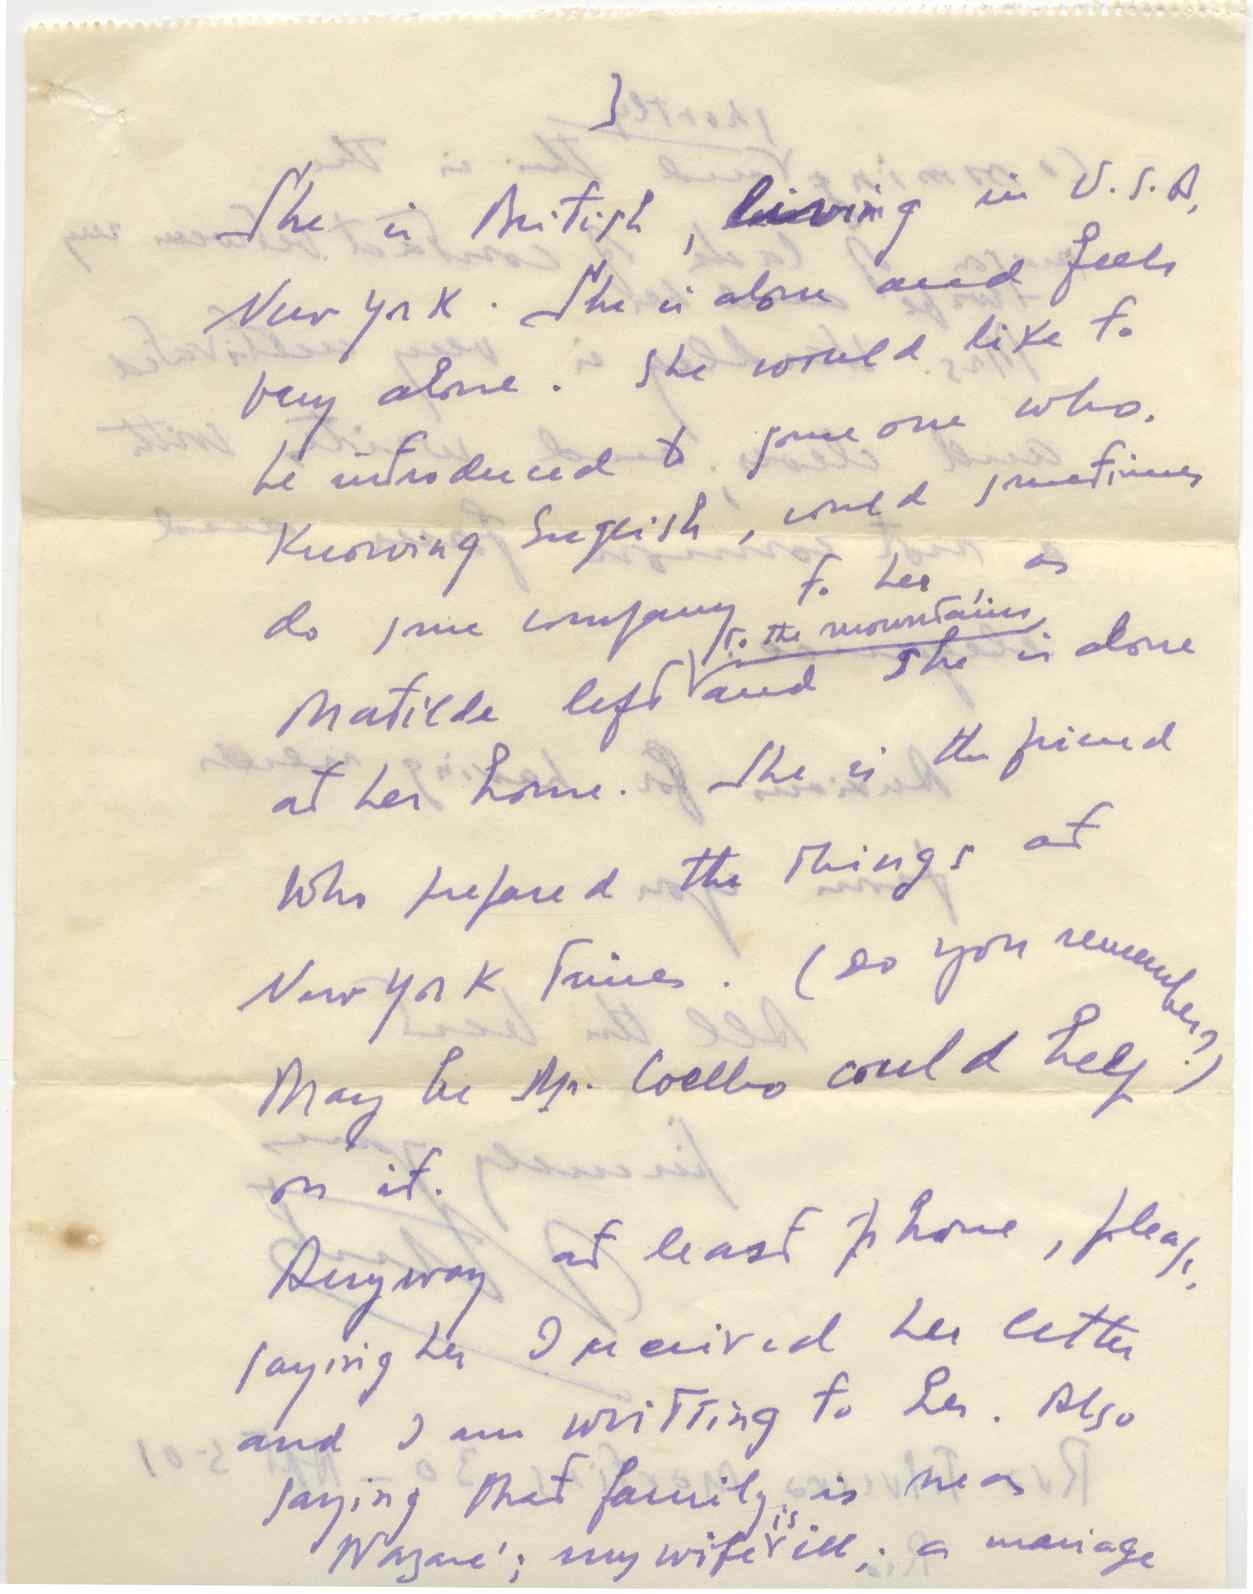 3
She is British, living in U.S.A,
New York. She is alone and feels
very alone. She would like to
be introduced to some one who,
knowing English, could sometimes
do some company to her, as
Matilde left to the mountains, and she is alone
at her home. She is the friend
who prepared the things at
New York Times. (Do you remember?)
May be Mr. Coelho could help
on it.
Anyway at least phone, please,
saying her I received her letter
and I am writting to her. Also
saying that family is near
Nazaré; my wife is ill; a mariage